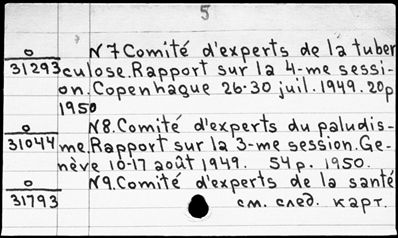 5
О N 7 Comité d'experts de la tuber
31293 culose. Rapport sur la 4-me sessi-
on. Copenhague 26-30 juil. 1949. 20p
1950
О N8. Comité d'experts du paludis-
31044 me. Rapport sur la 3-me session. Ge-
nève 10-17 août 1949. 54p. 1950.
О N9. Comité d'experts de la santé
31793 см. след. карт.